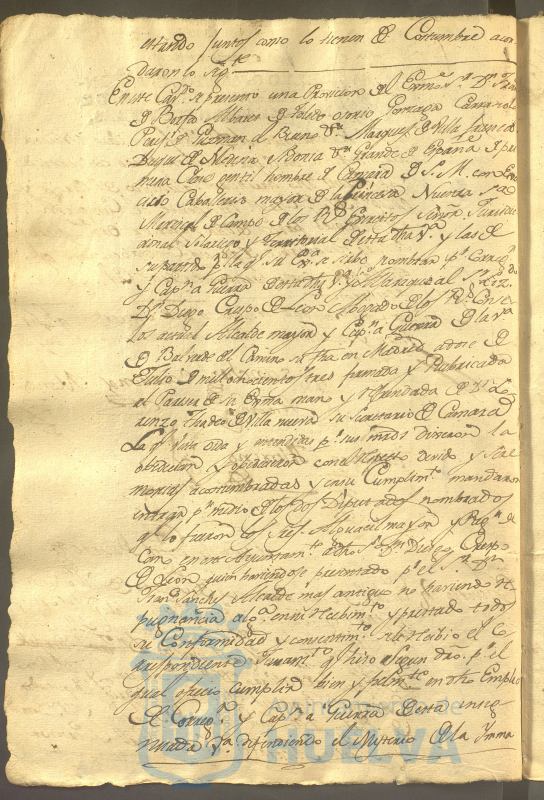 estando Juntos como lo tienen de Costumbre acor
daron lo sigte
En este Cavdo se presento una Provision del Exmo Sr Dn
de Borja Albares de Toledo Gonzaga Caracciolo
Perez de Guzman el Bueno Marques de Villafranca
Duque de Medina Sidonia Grande de España de pri
mera Clase gentil hombre de Camara de S. M. con
Caballerizo mayor de la Princesa Nuestra Sra
Mariscal de Campo de los Rs Exercitos Señor Jurisdic
cional Solariego y territorial de esta dha Va y las de
su partido pr la qe su Exa se sirbio nombrar pr Correxr
y Capn a Guerra de esta dha Va y Marquesado al Sr Lizdo
Dn Diego Crespo de Leon Abogado de los Rs Conse
jos actual Alcalde mayor y Capn a Guerra de la Va
de Balverde del Camino su fha en Madrid a doze de
Julio de mil ochocientos tres firmada y Rubricada
al Parecer de su Exma mano y Refrendada de Dn Lo
renzo Thadeo de Villanueva su Secretario de Camara
La qe vista oida y entendida pr sus mrds dixeron la
obedecian y obedecieron con el Respeto devido y Sere
monias acostumbradas y en su Cumplimto mandaron
entrara pr medio de los dos Diputados nombrados
qe lo fueron los Sres Alguacil mayor y Regr De
can en este Ayuntamto a dho Sr Dn Diego Crespo
de Leon quien haviendose presentado pr el Sr Dn
Franco Sanchez Alcalde mas antiguo no haviendo re
pugnancia alga en su Recibimto y prestado todos
su Conformidad y consentimto se le Recibio el Co
rrespondiente Juramto qe hizo segun dro pr el
qual ofrecio cumplir bien y fielmte en dho Empleo
de Corregr y Capn a Guerra de esta
Va defendiendo el Mysterio de la Imma
Ayuntamiento de
HUELVA